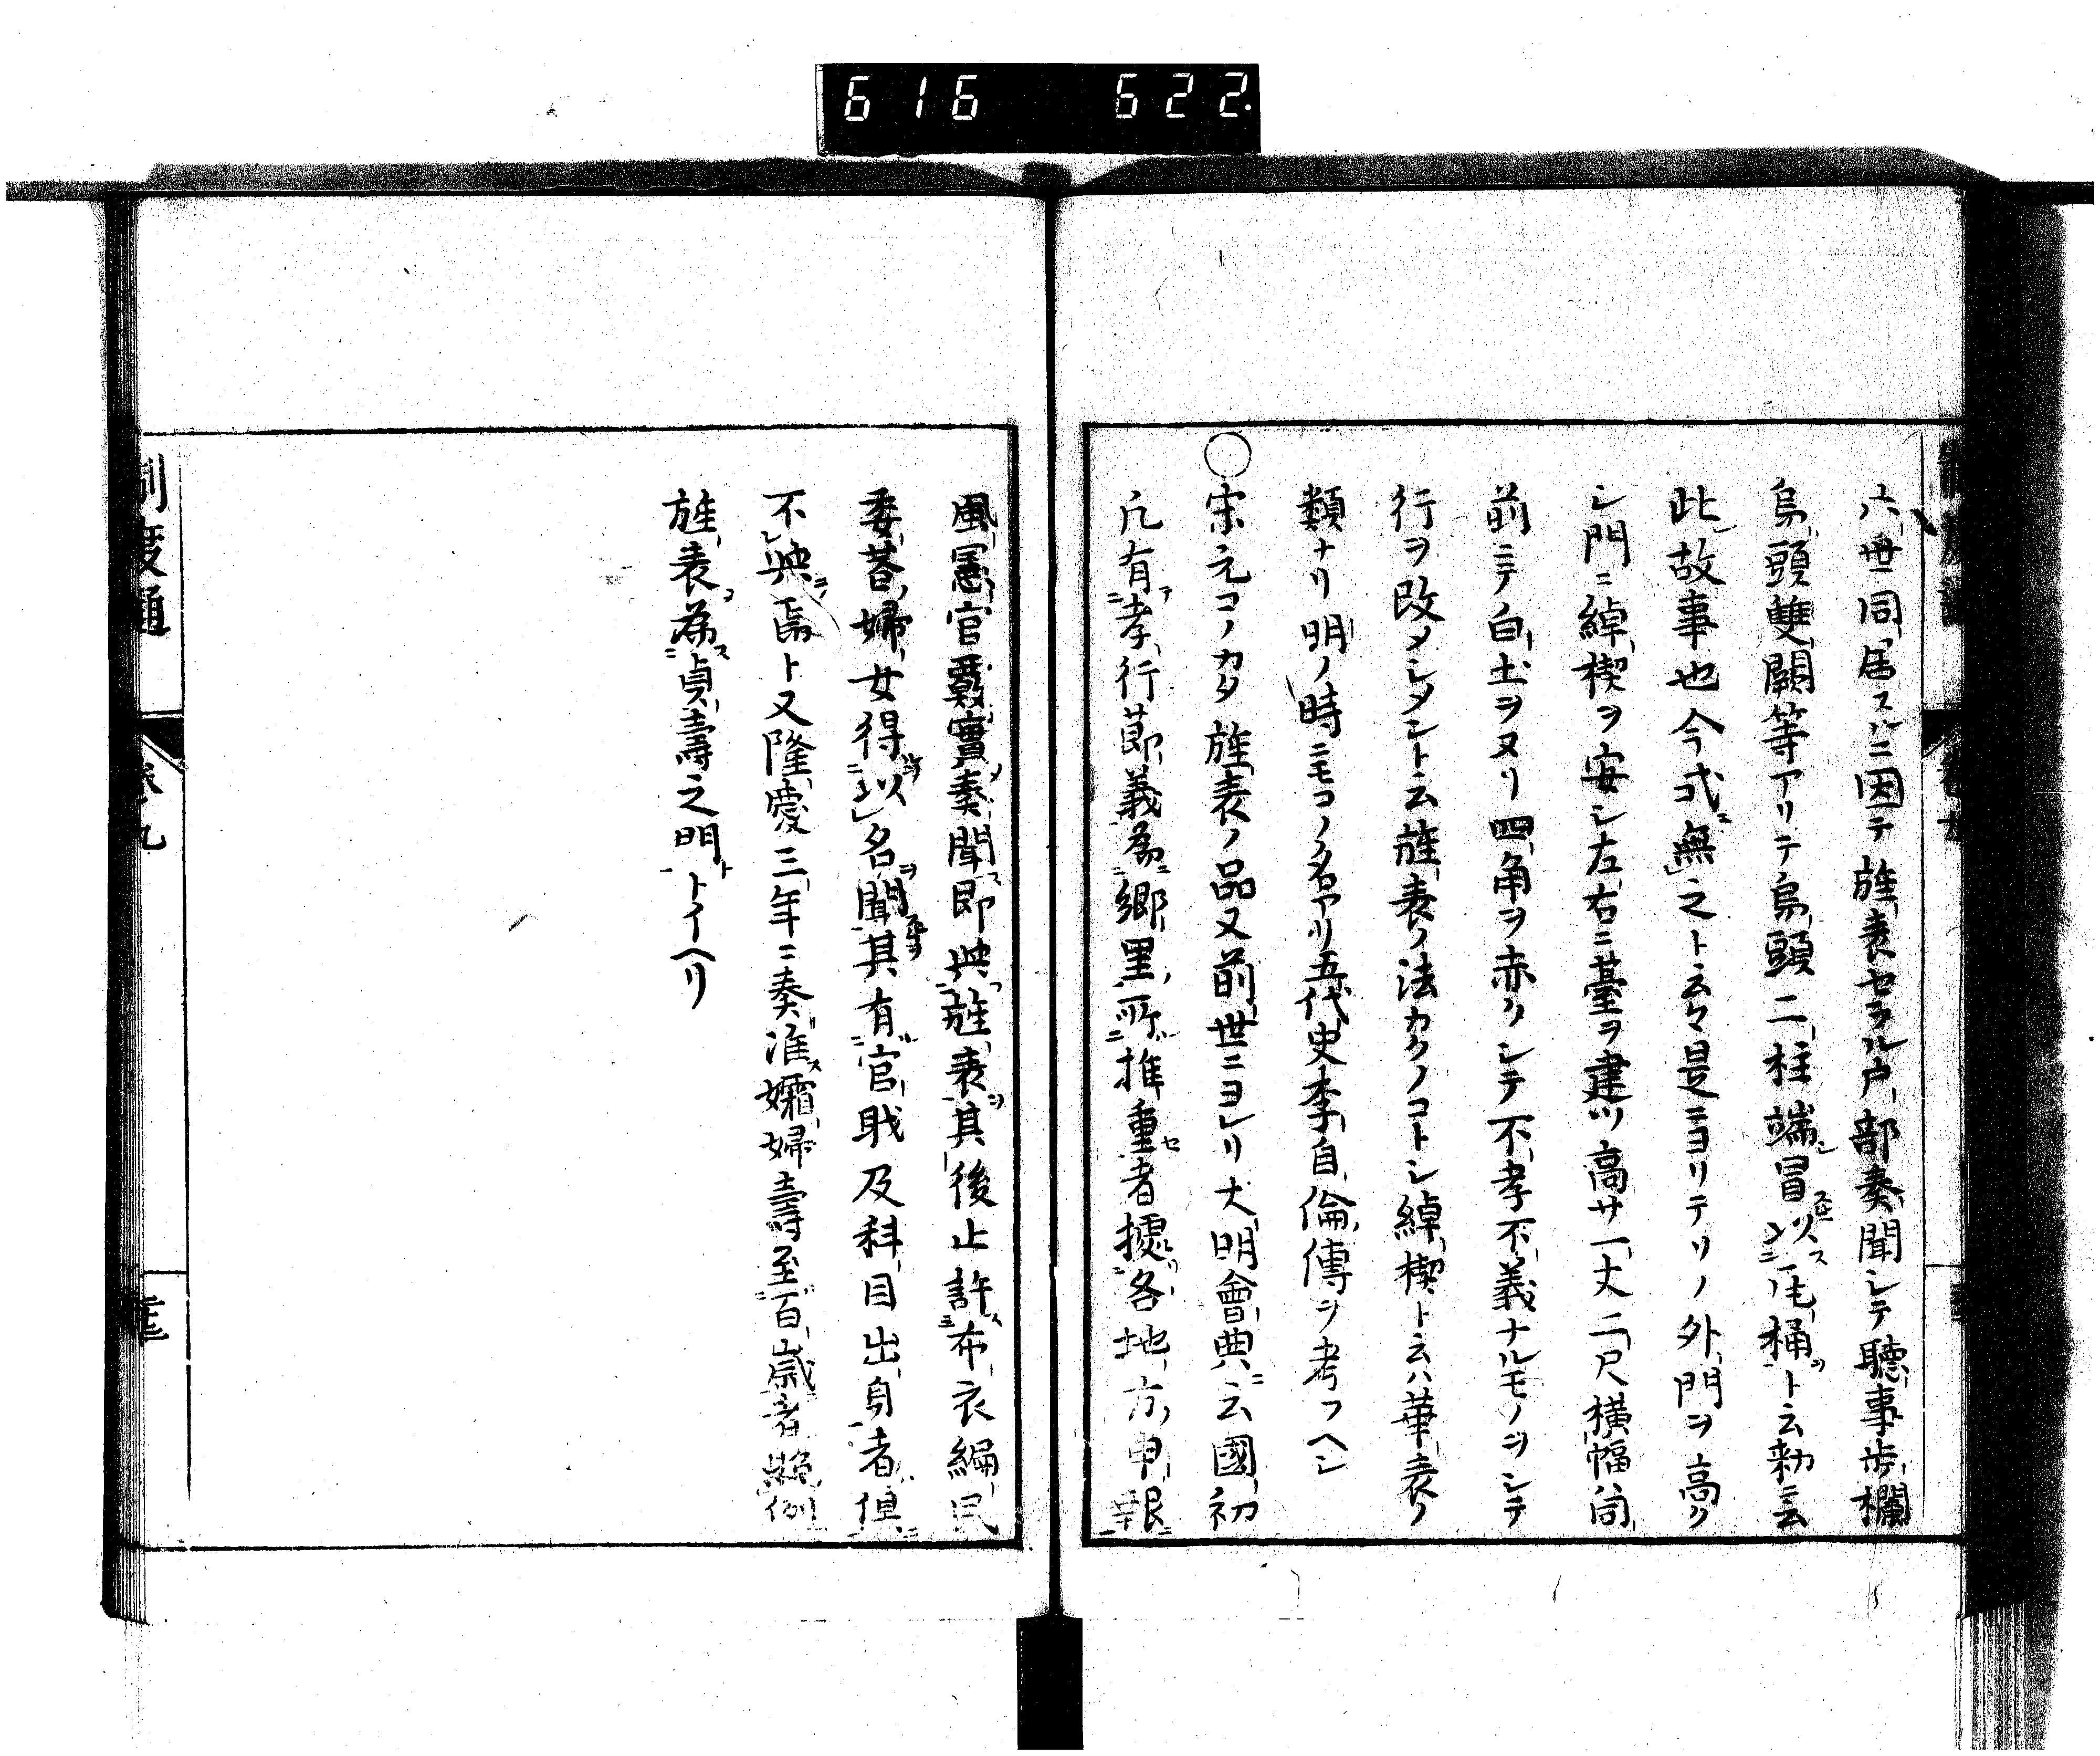 616 622.
六世同居スルニ因テ旌表セラル戸部奏聞シテ聽事歩欄
烏頭雙闕等アリテ烏頭二柱端冒以瓦桶ト云勅ニ云
此故事也今式無之ト云々是ニヨリテリノ外門ヲ高ク
シ門ニ綽楔ヲ安シ左右ニ臺ヲ建ツ高サ一丈二尺横幅ハ同
前ニテ白土ヲヌリ四角ヲ赤クシテ不孝不義ナルモノヲシテ
行ヲ改メシメント云旌表ノ法カクノコトシ綽楔ト云ハ華表ノ
類ナリ明ノ時ニモコノ名アリ五代史李自倫傳ヲ考フヘシ
○宋元コノカタ旌表ノ品又前世ニヨレリ大明會典ニ云國初
凢有孝行節義為郷里所推重者據各地方申報
風憲官覈實奏聞即與旌表其後止許布衣編民
委巷婦女得以名聞其有官職及科目出身者俱
不與焉ト又隆慶三年ニ奏准孀婦壽至百歲者照例
旌表為貞壽之門トイヘリ
制度通
卷九